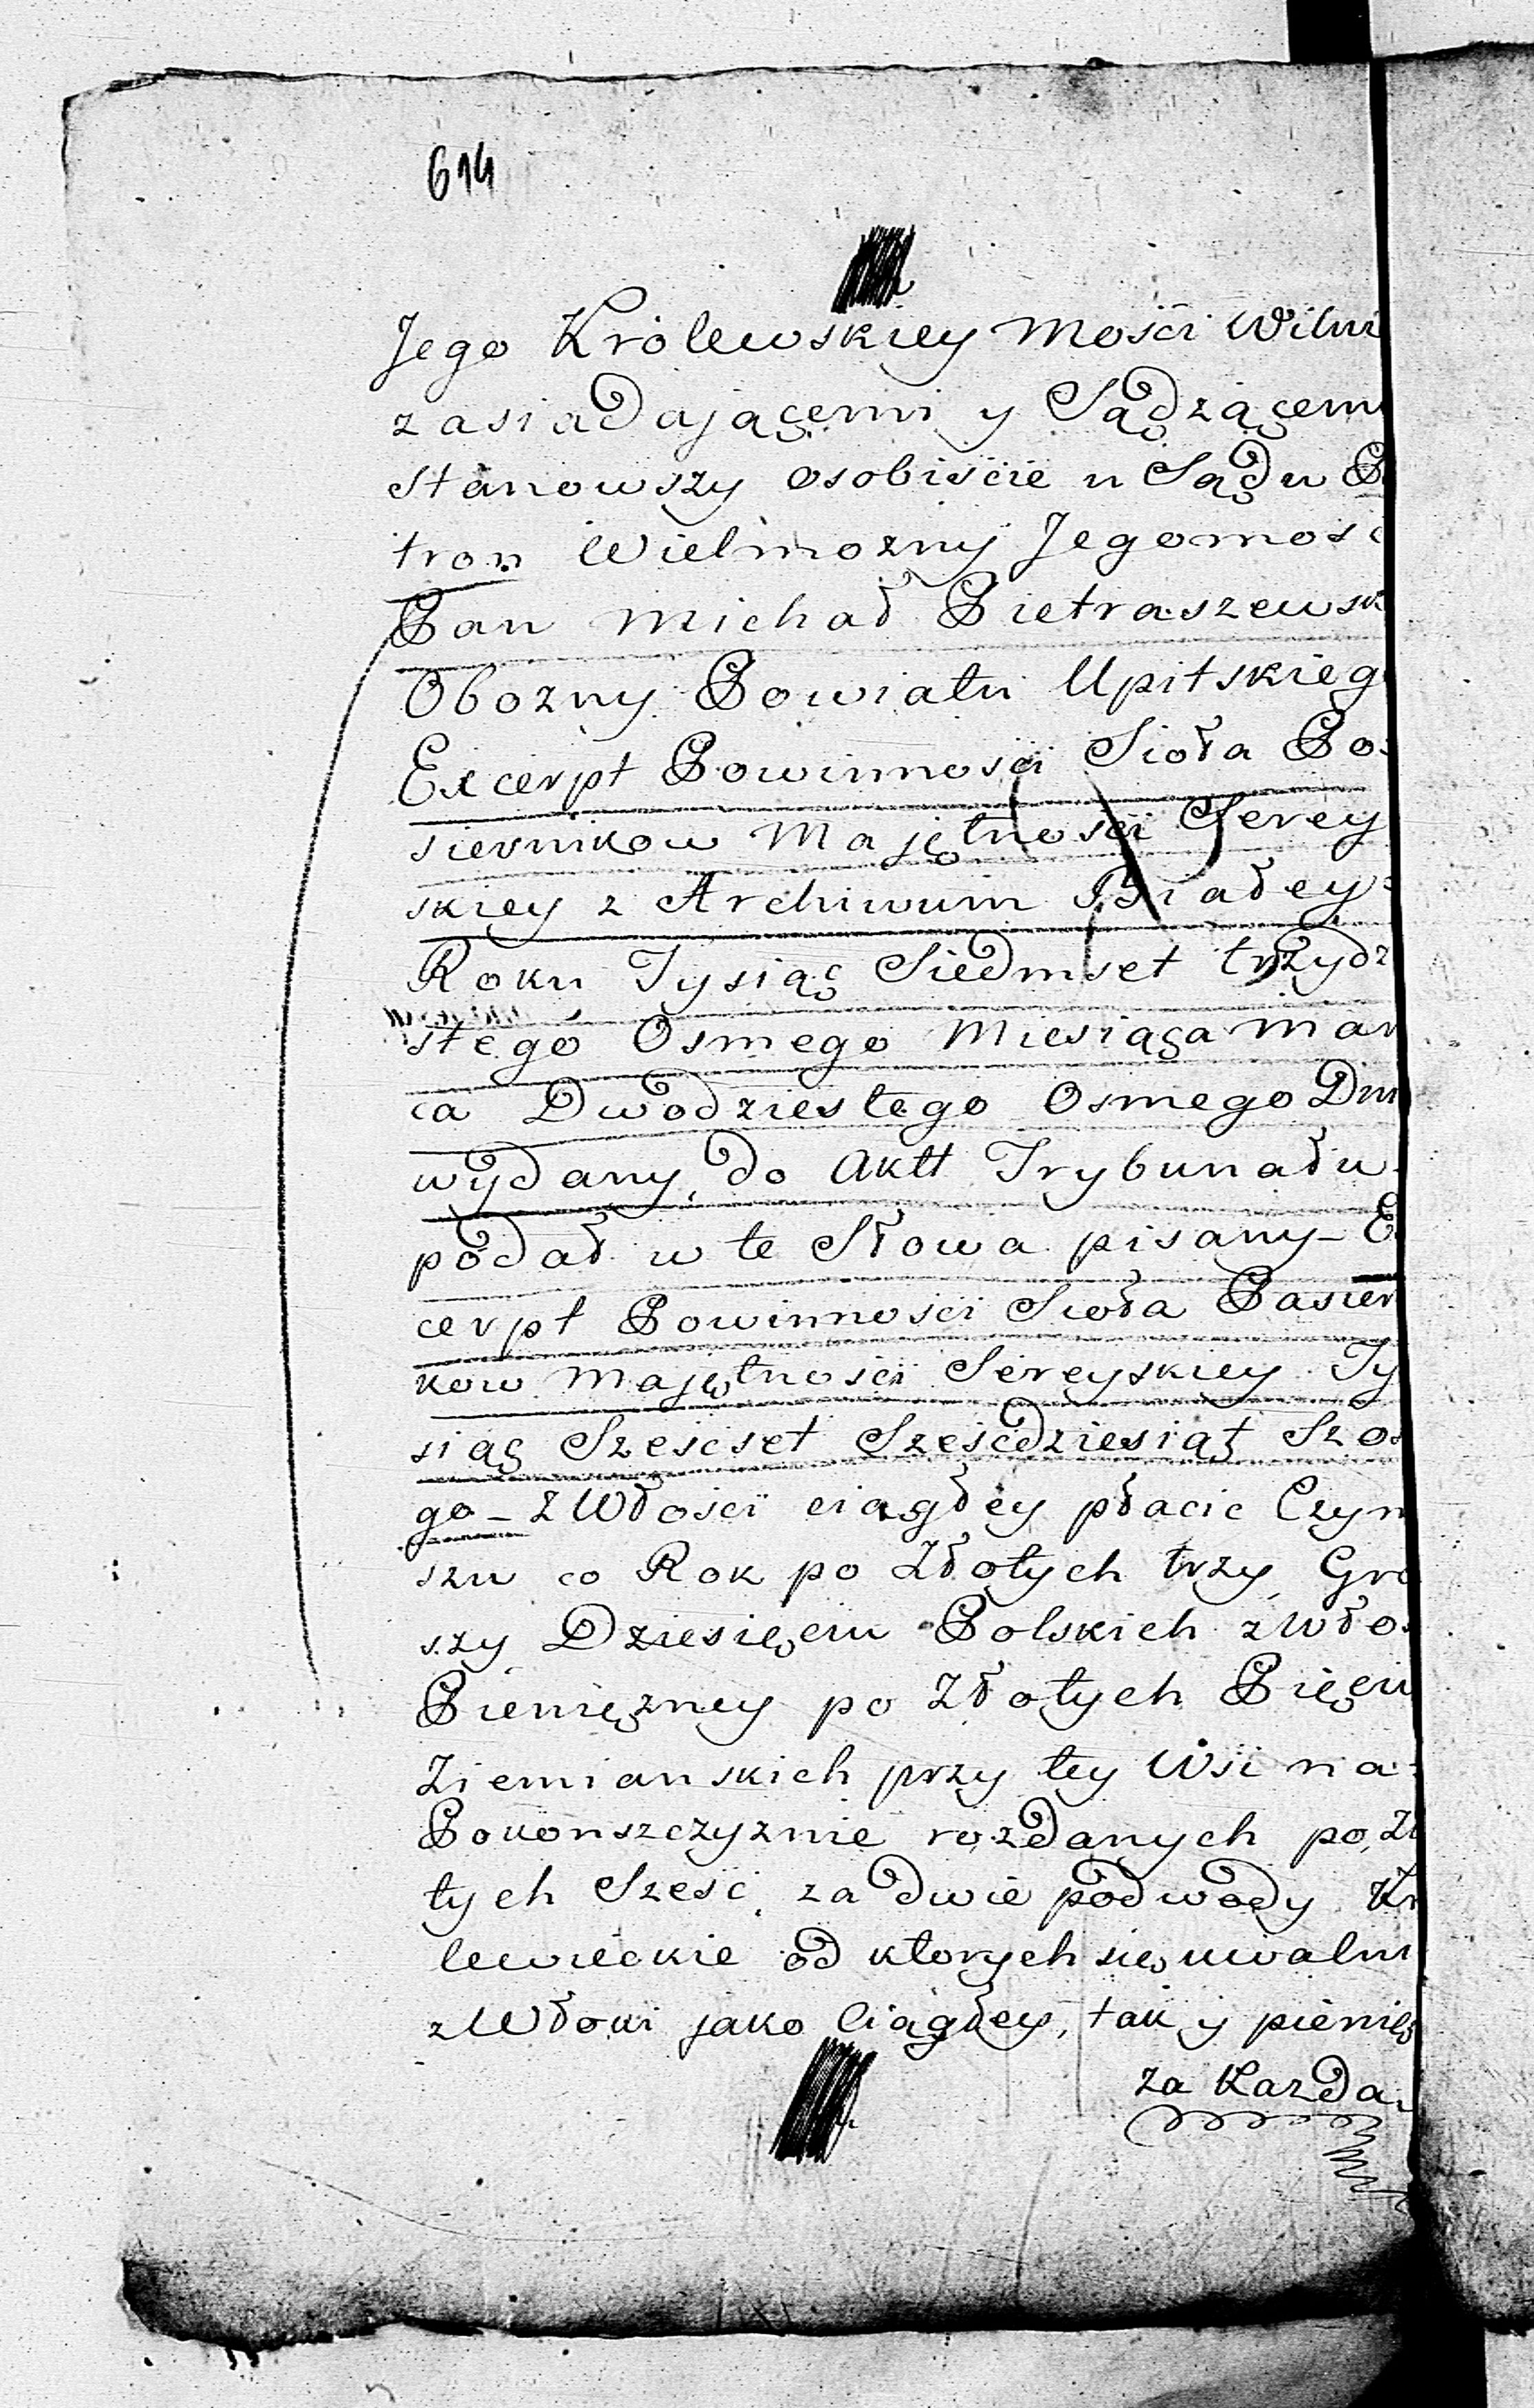 614
Jego Królewskiey Mości Wilni
zasiadaiącemi y Sądzącemi
stanowszy osobiście u Sądu P
tron Wielmożny Jegomość
Pan Michał Pietraszewsk
Obozny Powiatu Upitskieg
Excerpt Powinności Sioła Po
siernikow Majętności Serey
skiey z Archiwum Białey
Roku Tysiąc Siedmset trzydz
stego Osmego Miesiąca Mar
ca Dwodziestego Osmego Dni
wydany, do Aktt Trybunału
podał w te Słowa pisany – E
cerpt Powinności Sioła Pasier
kow Majętności Sereyskiey Ty
siąc Szescset Szescdziesiąt Szos
go – z Włości ciągłey płacic Czyn
szu co Rok po Złotych trzy Gro
szy Dziesięciu Polskich z Wło
Pieniężney po Złotych Pięciu
Ziemianskich przy tey Wsi na
Pokonszczyznie rozdanych po Zł
tych Sześć, za dwie podwody Kr
lewieckie od ktorych się uwalni
z Włoki jako Ciągłey, tak y pienięż
za Kazda